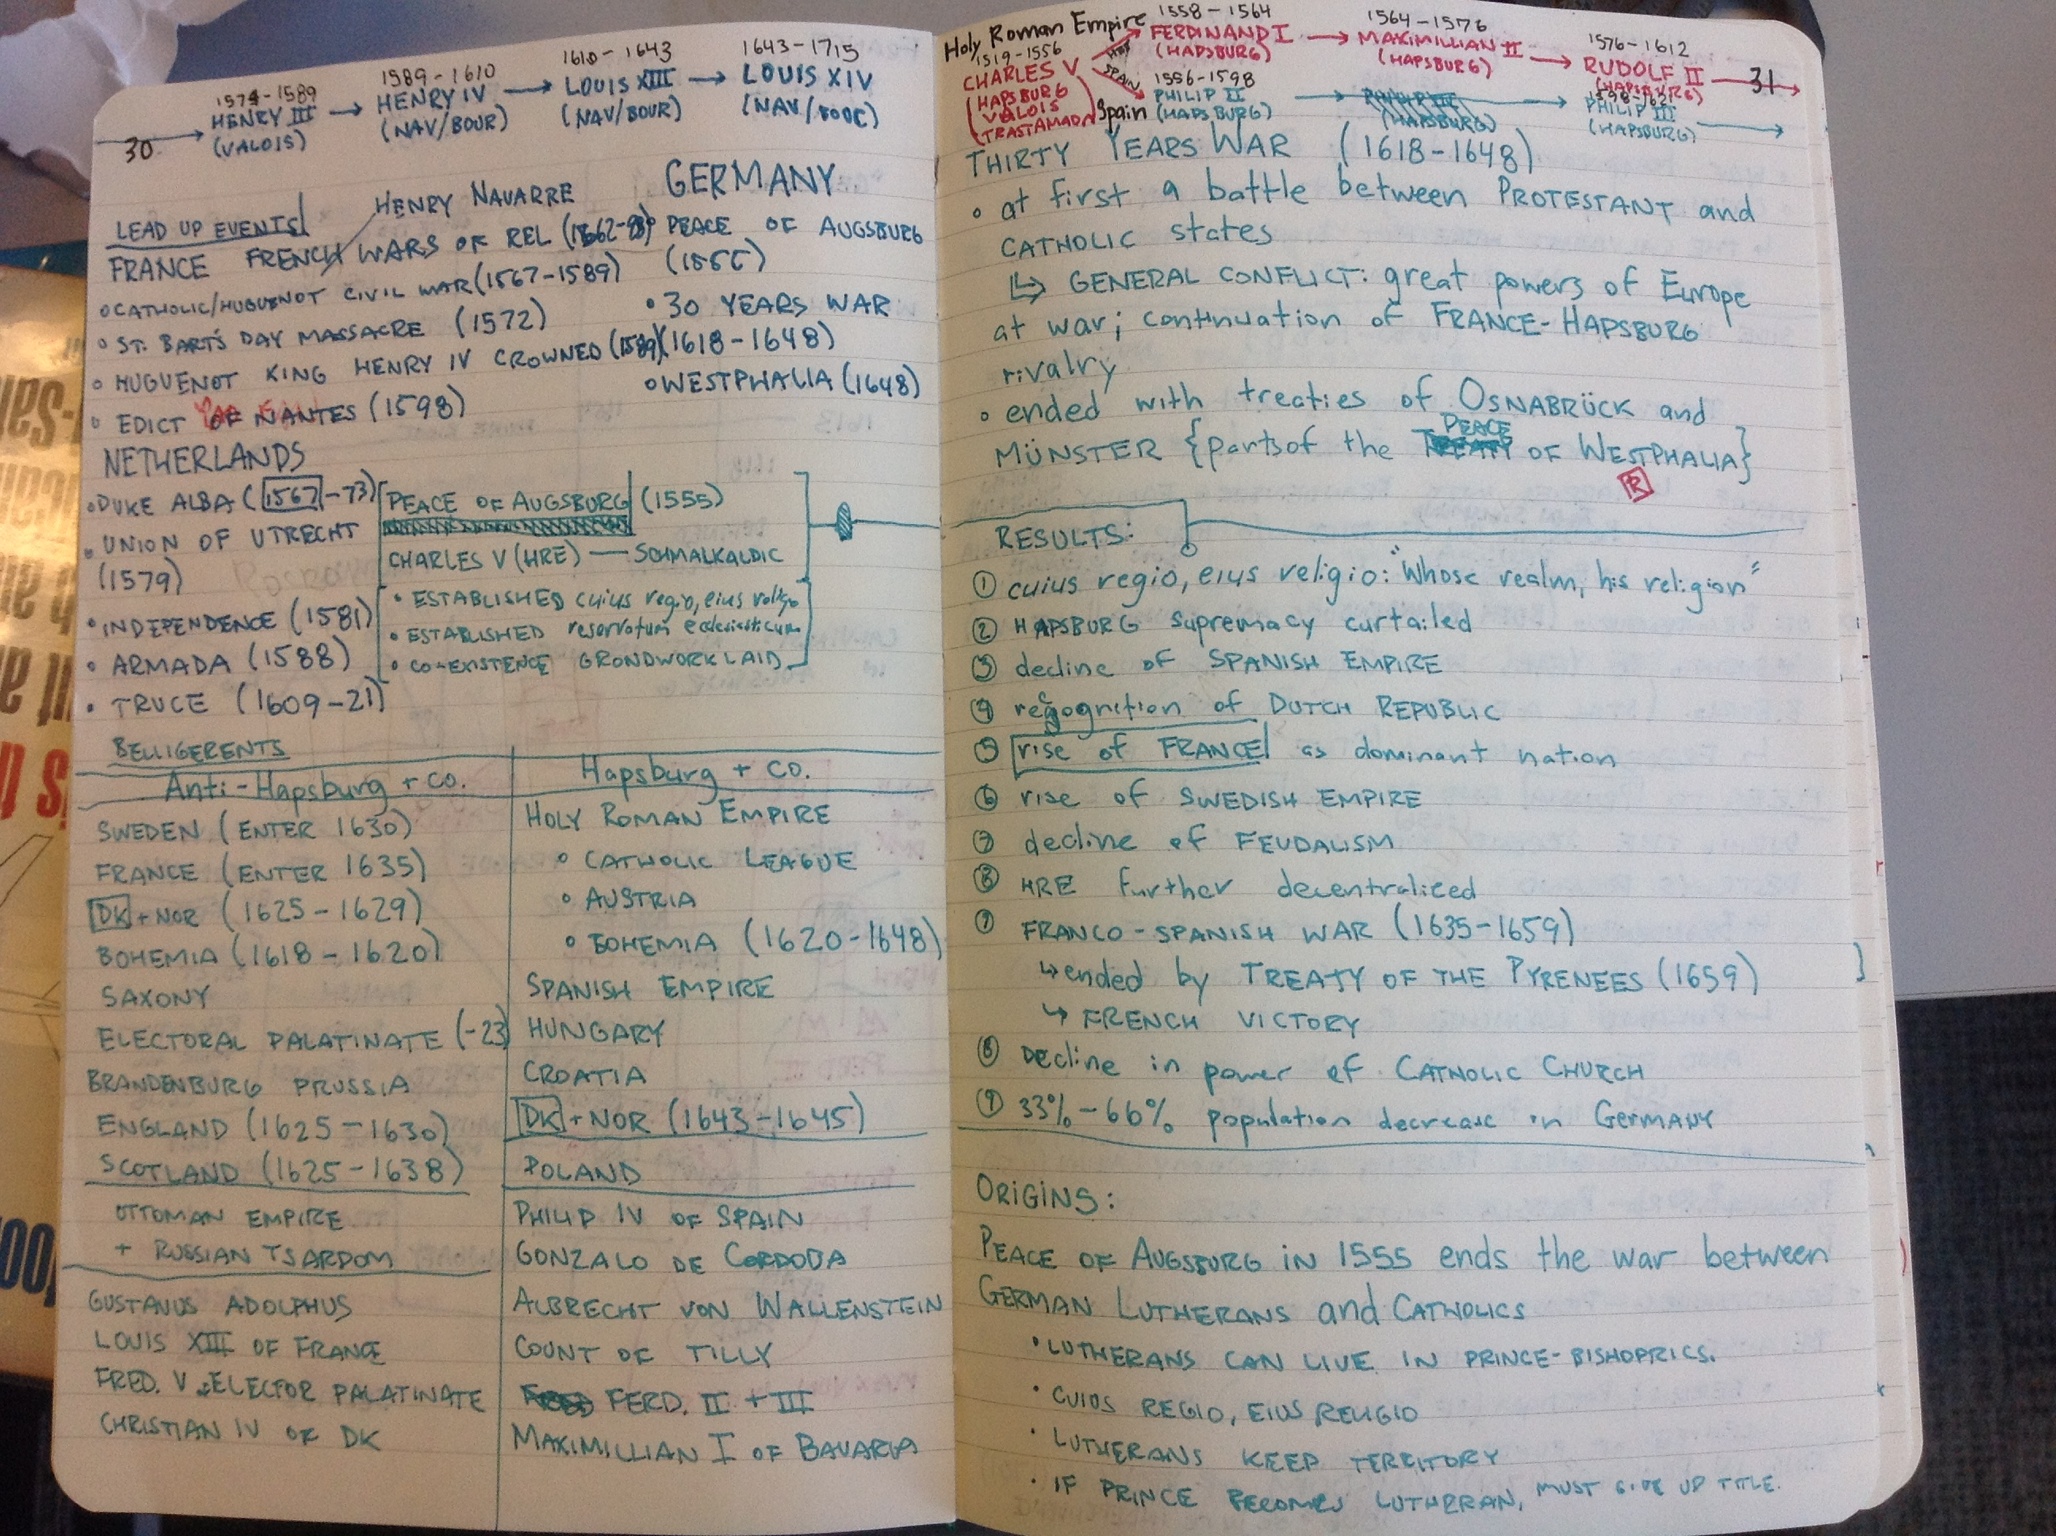 1574-1589
HENRY III
(VALOIS)
1589-1610
HENRY IV
(NAV/BOUR)
1610-1643
LOUIS XIII
(NAV/BOUR)
1643-1715
LOUIS XIV
30
LEAD UP EVENTS
HENRY NAVARRE
FRANCE FRENCH WARS OF REL
○ CATHOLIC/HUGUENOT CIVIL WAR (1567-1589)
○ ST. BART'S DAY MASSACRE (1572)
○ HUGUENOT KING HENRY IV CROWNED (1589)
○ EDICT OF NANTES (1598)
GERMANY
PEACE OF AUGSBURG
(1555)
• 30 YEARS WAR
(1618-1648)
○ WESTPHALIA (1648)
NETHERLANDS
• DUKE ALBA (1567-73)
• UNION OF UTRECHT
(1579)
• INDEPENDENCE (1581)
• ARMADA (1588)
• TRUCE (1609-21)
PEACE OF AUGSBURG (1555)
CHARLES V (HRE) — SCHMALKALDIC
• ESTABLISHED cuius regio, eius
• ESTABLISHED reservatum
• CO-EXISTENCE GRONDWORK LAID
BELLIGERENTS
Anti-Hapsburg + co.
SWEDEN (ENTER 1630)
FRANCE (ENTER 1635)
DK + NOR (1625-1629)
BOHEMIA (1618-1620)
SAXONY
ELECTORAL PALATINATE (-23)
BRANDENBURG PRUSSIA
ENGLAND (1625-1630)
SCOTLAND (1625-1638)
OTTOMAN EMPIRE
+ RUSSIAN TSARDOM
GUSTAVUS ADOLPHUS
LOUIS XIII OF FRANCE
FRED. V, ELECTOR PALATINATE
CHRISTIAN IV OF DK
Hapsburg + co.
HOLY ROMAN EMPIRE
○ CATHOLIC LEAGUE
○ AUSTRIA
○ BOHEMIA (1620-1648)
SPANISH EMPIRE
HUNGARY
CROATIA
DK + NOR (1643-1645)
POLAND
PHILIP IV OF SPAIN
GONZALO DE CORDOBA
ALBRECHT VON WALLENSTEIN
COUNT OF TILLY
FERD. II + III
MAXIMILLIAN I OF BAVARIA
Holy Roman Empire
1519-1556
CHARLES V
(HAPSBURG
VALOIS
TRASTAMADA)
HRE
SPAIN
1558-1564
FERDINAND I
(HAPSBURG)
1564-1576
MAXIMILLIAN II
(HAPSBURG)
1576-1612
RUDOLF II
(HAPSBURG)
31
Spain
1556-1598
PHILIP II
(HAPSBURG)
(HAPSBURG)
1598-1621
PHILIP III
(HAPSBURG)
THIRTY YEARS WAR (1618-1648)
○ at first a battle between PROTESTANT and
CATHOLIC states
↳ GENERAL CONFLICT: great powers of Europe
at war; continuation of FRANCE-HAPSBURG
rivalry
○ ended with treaties of OSNABRÜCK and
MÜNSTER {parts of the PEACE OF WESTPHALIA}
R
RESULTS:
① cuius regio, eius religio: "Whose realm, his religion"
② HAPSBURG supremacy curtailed
③ decline of SPANISH EMPIRE
④ recognition of DUTCH REPUBLIC
⑤ rise of FRANCE as dominant nation
⑥ rise of SWEDISH EMPIRE
⑦ decline of FEUDALISM
⑧ HRE further decentralized
⑨ FRANCO-SPANISH WAR (1635-1659)
↳ ended by TREATY OF THE PYRENEES (1659)
↳ FRENCH VICTORY
⑧ Decline in power of CATHOLIC CHURCH
⑨ 33%-66% population decrease in GERMANY
ORIGINS:
PEACE OF AUGSBURG IN 1555 ends the war between
GERMAN LUTHERANS and CATHOLICS
• LUTHERANS CAN LIVE IN PRINCE-BISHOPRICS.
• CUIOS REGIO, EIUS RELIGIO
• LUTHERANS KEEP TERRITORY
• IF PRINCE BECOMES LUTHERAN, MUST GIVE UP TITLE.